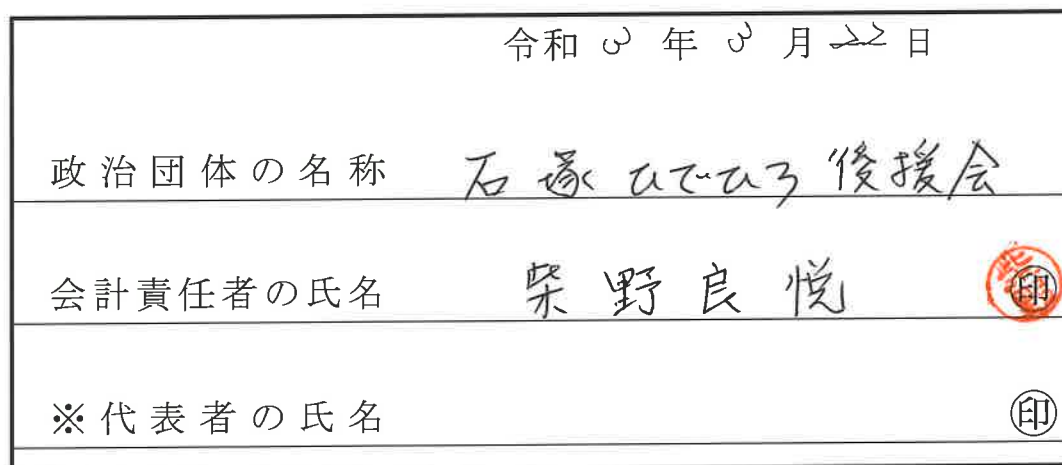 令和3年3月22日
政治団体の名称 石塚ひでひろ後援会
会計責任者の氏名 柴野良悦 印
※代表者の氏名 印